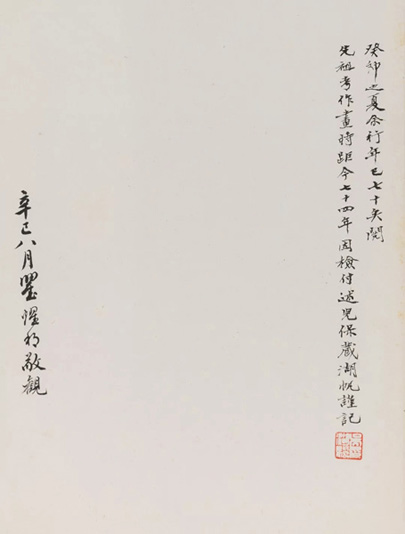 癸卯之夏余行年已七十矣閱
先祖考作畫時距今七十四年因檢付述兒保藏湖帆謹記
辛巳八月瞿惺相敬觀